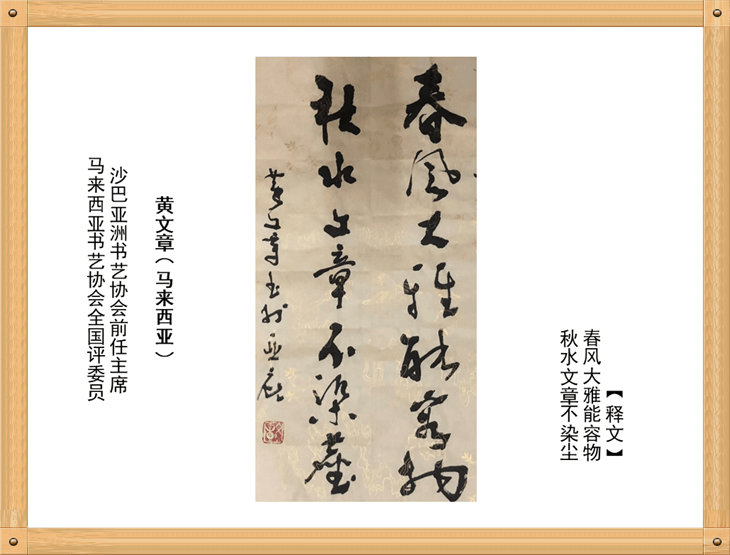 【释文】
春风大雅能容物
秋水文章不染尘
春风大雅能容物
秋水文章不染尘
黄文章书於亚庇
黄文章（马来西亚）
沙巴亚洲书艺协会前任主席
马来西亚书艺协会全国评委员